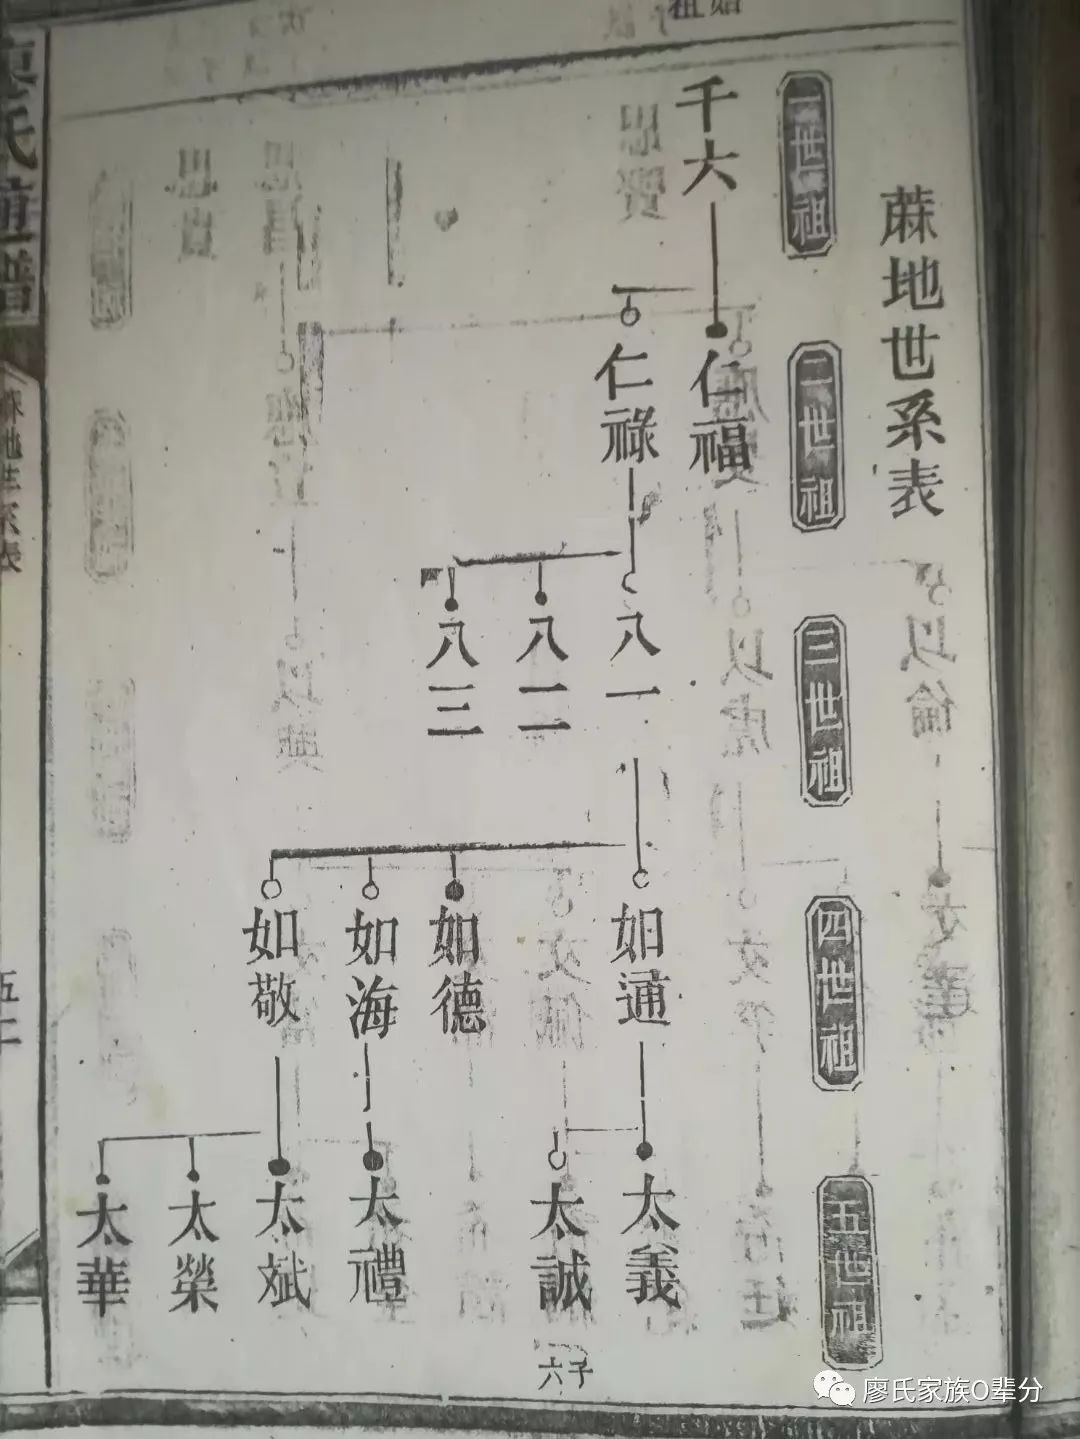 蔴地世系表
一世祖
二世祖
三世祖
四世祖
五世祖
始祖
千六
仁福
仁祿
八一
八二
八三
如通
如德
如海
如敬
太義
太誠
子六
太禮
太斌
太榮
太華
氏通譜
蔴地世系表
五二
廖氏家族O輩分